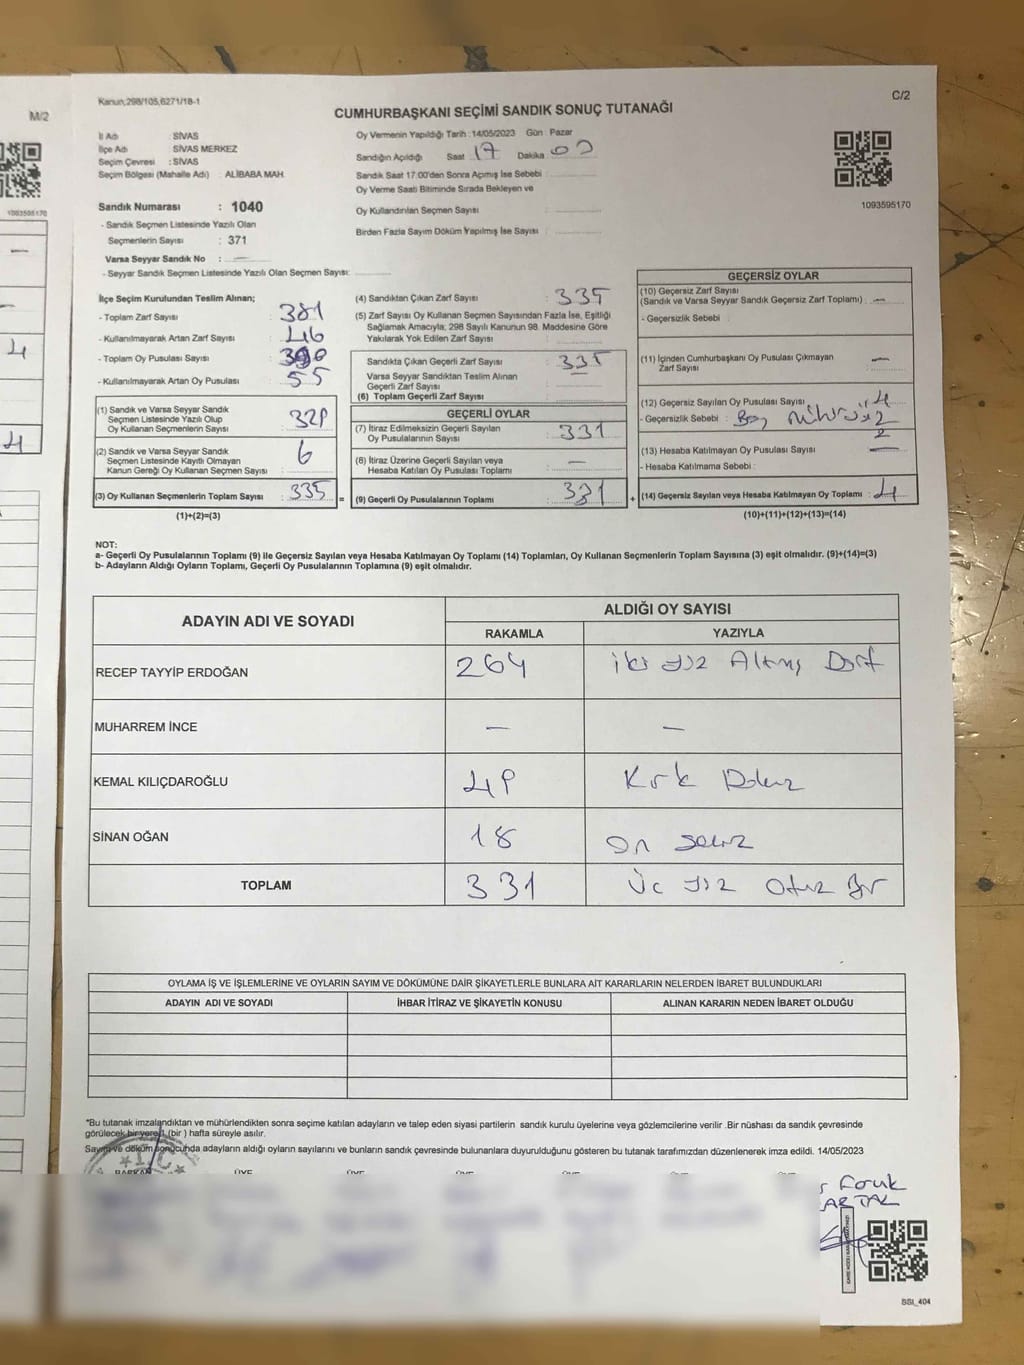 M/2
1093595170
4
4
Kanun,298/105,6271/18-1
C/2
CUMHURBAŞKANI SEÇİMİ SANDIK SONUÇ TUTANAĞI
İl Adı SİVAS
İlçe Adı SİVAS MERKEZ
Seçim Çevresi : SİVAS
Seçim Bölgesi (Mahalle Adı) : ALİBABA MAH.
Sandık Numarası : 1040
- Sandık Seçmen Listesinde Yazılı Olan
Seçmenlerin Sayısı : 371
Varsa Seyyar Sandık No : —
- Seyyar Sandık Seçmen Listesinde Yazılı Olan Seçmen Sayısı:
Oy Vermenin Yapıldığı Tarih : 14/05/2023 Gün : Pazar
Sandığın Açıldığı Saat 17 Dakika 00
Sandık Saat 17:00'den Sonra Açımış İse Sebebi :
Oy Verme Saati Bitiminde Sırada Bekleyen ve
Oy Kullandırılan Seçmen Sayısı :
Birden Fazla Sayım Döküm Yapılmış İse Sayısı :
1093595170
İlçe Seçim Kurulundan Teslim Alınan;
- Toplam Zarf Sayısı : 381
- Kullanılmayarak Artan Zarf Sayısı : 46
- Toplam Oy Pusulası Sayısı : 390
- Kullanılmayarak Artan Oy Pusulası : 55
(1) Sandık ve Varsa Seyyar Sandık
Seçmen Listesinde Yazılı Olup
Oy Kullanan Seçmenlerin Sayısı : 329
(2) Sandık ve Varsa Seyyar Sandık
Seçmen Listesinde Kayıtlı Olmayan
Kanun Gereği Oy Kullanan Seçmen Sayısı : 6
(3) Oy Kullanan Seçmenlerin Toplam Sayısı : 335 =
(1)+(2)=(3)
(4) Sandıktan Çıkan Zarf Sayısı : 335
(5) Zarf Sayısı Oy Kullanan Seçmen Sayısından Fazla İse, Eşitliği
Sağlamak Amacıyla; 298 Sayılı Kanunun 98. Maddesine Göre
Yakılarak Yok Edilen Zarf Sayısı :
Sandıkta Çıkan Geçerli Zarf Sayısı : 335
Varsa Seyyar Sandıktan Teslim Alınan
Geçerli Zarf Sayısı :
(6) Toplam Geçerli Zarf Sayısı :
GEÇERLİ OYLAR
(7) İtiraz Edilmeksizin Geçerli Sayılan
Oy Pusulalarının Sayısı : 331
(8) İtiraz Üzerine Geçerli Sayılan veya
Hesaba Katılan Oy Pusulası Toplamı : —
(9) Geçerli Oy Pusulalarının Toplamı : 331 +
GEÇERSİZ OYLAR
(10) Geçersiz Zarf Sayısı
(Sandık ve Varsa Seyyar Sandık Geçersiz Zarf Toplamı) : —
- Geçersizlik Sebebi :
(11) İçinden Cumhurbaşkanı Oy Pusulası Çıkmayan
Zarf Sayısı : —
(12) Geçersiz Sayılan Oy Pusulası Sayısı : 4
- Geçersizlik Sebebi : Boş 2
2
(13) Hesaba Katılmayan Oy Pusulası Sayısı : —
- Hesaba Katılmama Sebebi :
(14) Geçersiz Sayılan veya Hesaba Katılmayan Oy Toplamı : 4
(10)+(11)+(12)+(13)=(14)
NOT:
a- Geçerli Oy Pusulalarının Toplamı (9) ile Geçersiz Sayılan veya Hesaba Katılmayan Oy Toplamı (14) Toplamları, Oy Kullanan Seçmenlerin Toplam Sayısına (3) eşit olmalıdır. (9)+(14)=(3)
b- Adayların Aldığı Oyların Toplamı, Geçerli Oy Pusulalarının Toplamına (9) eşit olmalıdır.
ADAYIN ADI VE SOYADI
ALDIĞI OY SAYISI
RAKAMLA YAZIYLA
RECEP TAYYİP ERDOĞAN 264 iki yüz Altmış Dört
MUHARREM İNCE — —
KEMAL KILIÇDAROĞLU 49 Kırk Dokuz
SİNAN OĞAN 18 On sekiz
TOPLAM 331 Üç yüz Otuz Bir
OYLAMA İŞ VE İŞLEMLERİNE VE OYLARIN SAYIM VE DÖKÜMÜNE DAİR ŞİKAYETLERLE BUNLARA AİT KARARLARIN NELERDEN İBARET BULUNDUKLARI
ADAYIN ADI VE SOYADI İHBAR İTİRAZ VE ŞİKAYETİN KONUSU ALINAN KARARIN NEDEN İBARET OLDUĞU
*Bu tutanak imzalandıktan ve mühürlendikten sonra seçime katılan adayların ve talep eden siyasi partilerin sandık kurulu üyelerine veya gözlemcilerine verilir .Bir nüshası da sandık çevresinde
görülecek bir yere 1 (bir ) hafta süreyle asılır.
Sayım ve döküm sonucunda adayların aldığı oyların sayılarını ve bunların sandık çevresinde bulunanlara duyurulduğunu gösteren bu tutanak tarafımızdan düzenlenerek imza edildi. 14/05/2023
T.C
BAŞKAN ÜYE ÜYE ÜYE ÜYE
SSI_404